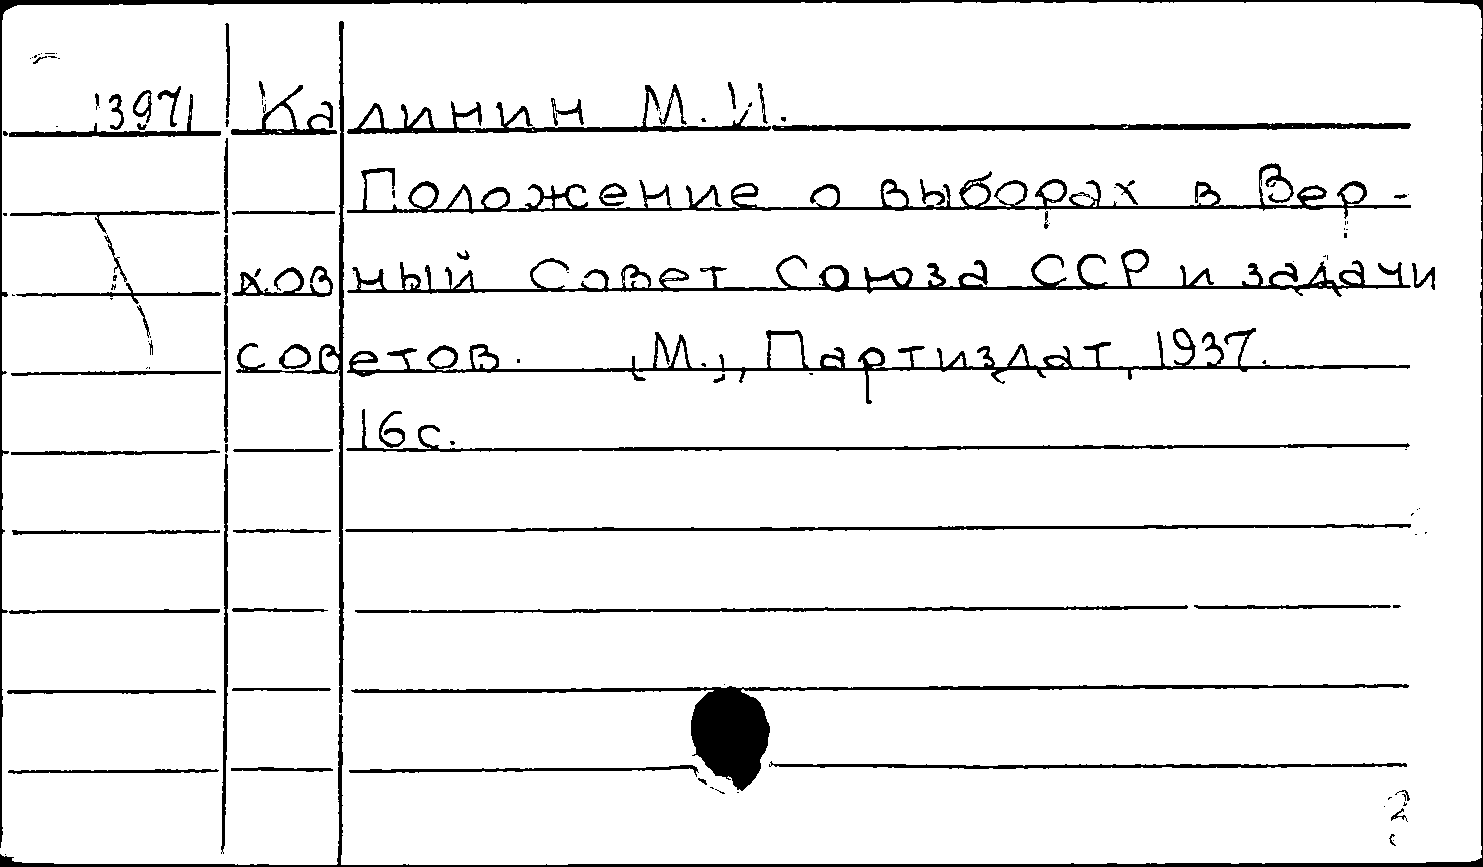 13971 Калинин М.И.
Положение о выборах в Вер-
ховный Совет Союза ССР и задачи
советов. [М.], Партиздат, 1937.
16с.
2